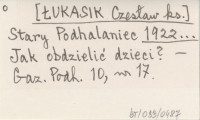 [ŁUKASIK Czesław ks.]
Stary Podhalaniec 1922...
Jak obdzielić dzieci? —
Gaz. Podh. 10, nr 17.
br/033/0487